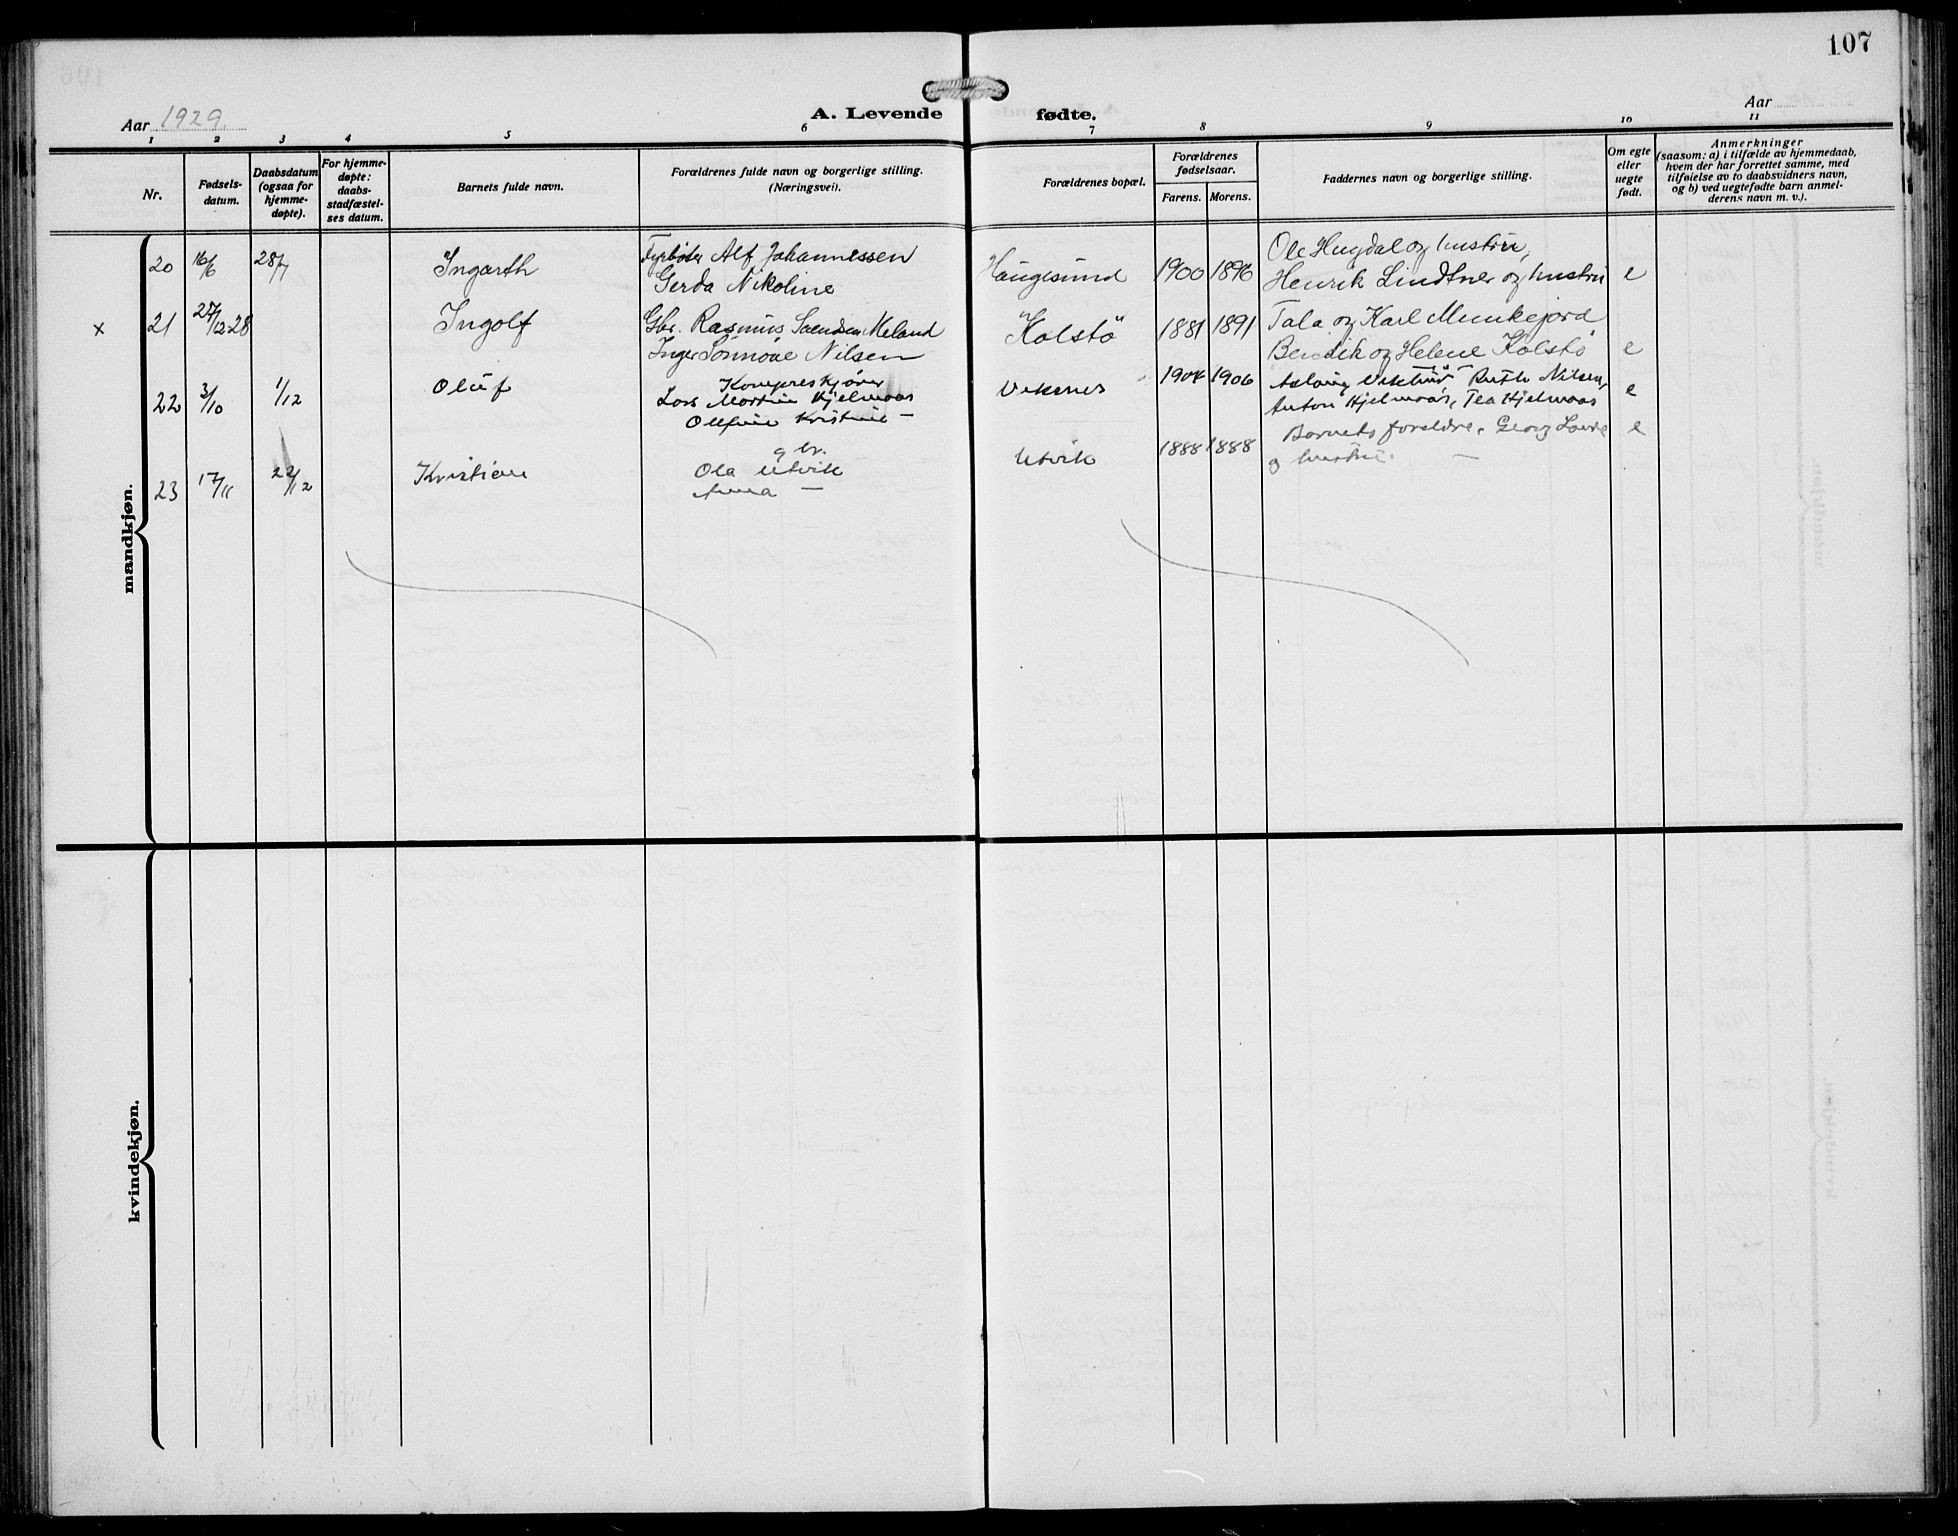 107
Aar 1929.
A. Levende fødte.
Aar
1 2 3 4 5 6 7 8 9 10 11
Nr.
Fødsels-
datum.
Daabsdatum
(ogsaa for
hjemme-
døpte).
For hjemme-
døpte:
daabs-
stadfæstel-
ses datum.
Barnets fulde navn.
Forældrenes fulde navn og borgerlige stilling.
(Næringsvei).
Forældrenes bopæl.
Forældrenes
fødselsaar.
Farens. Morens.
Faddernes navn og borgerlige stilling.
Om egte
eller
uegte
født.
Anmerkninger
(saasom: a) i tilfælde av hjemmedaab,
hvem der har forrettet samme, med
tilføielse av to daabsvidners navn,
og b) ved uegtefødte barn anmel-
derens navn m. v.).
mandkjøn.
20 16/6 28/7 Ingarth Fyrbøter Alf Johannessen Haugesund 1900 1896 Ole Hugdal og hustru,
Gerda Nikoline Henrik Lindtner og hustru e
x 21 27/12 28 Ingolf Gbr. Rasmus Svendsen Meland Kolstö 1881 1891 Tala og Karl Munkejord
Inger Nilsen Bendik og Helene Kolstö e
22 3/10 1/12 Oluf Lars Martin Hjelmaas Vikenes 1904 1906 Ruth Nilsen,
Kristine — Anton Hjelmaas, Tea Hjelmaas e
23 17/11 22/12 Kristian gbr. Utvik 1888 1888 Barnets foreldre, Georg e
Ola Utvik og hustru. —
Anna —
kvindekjøn.